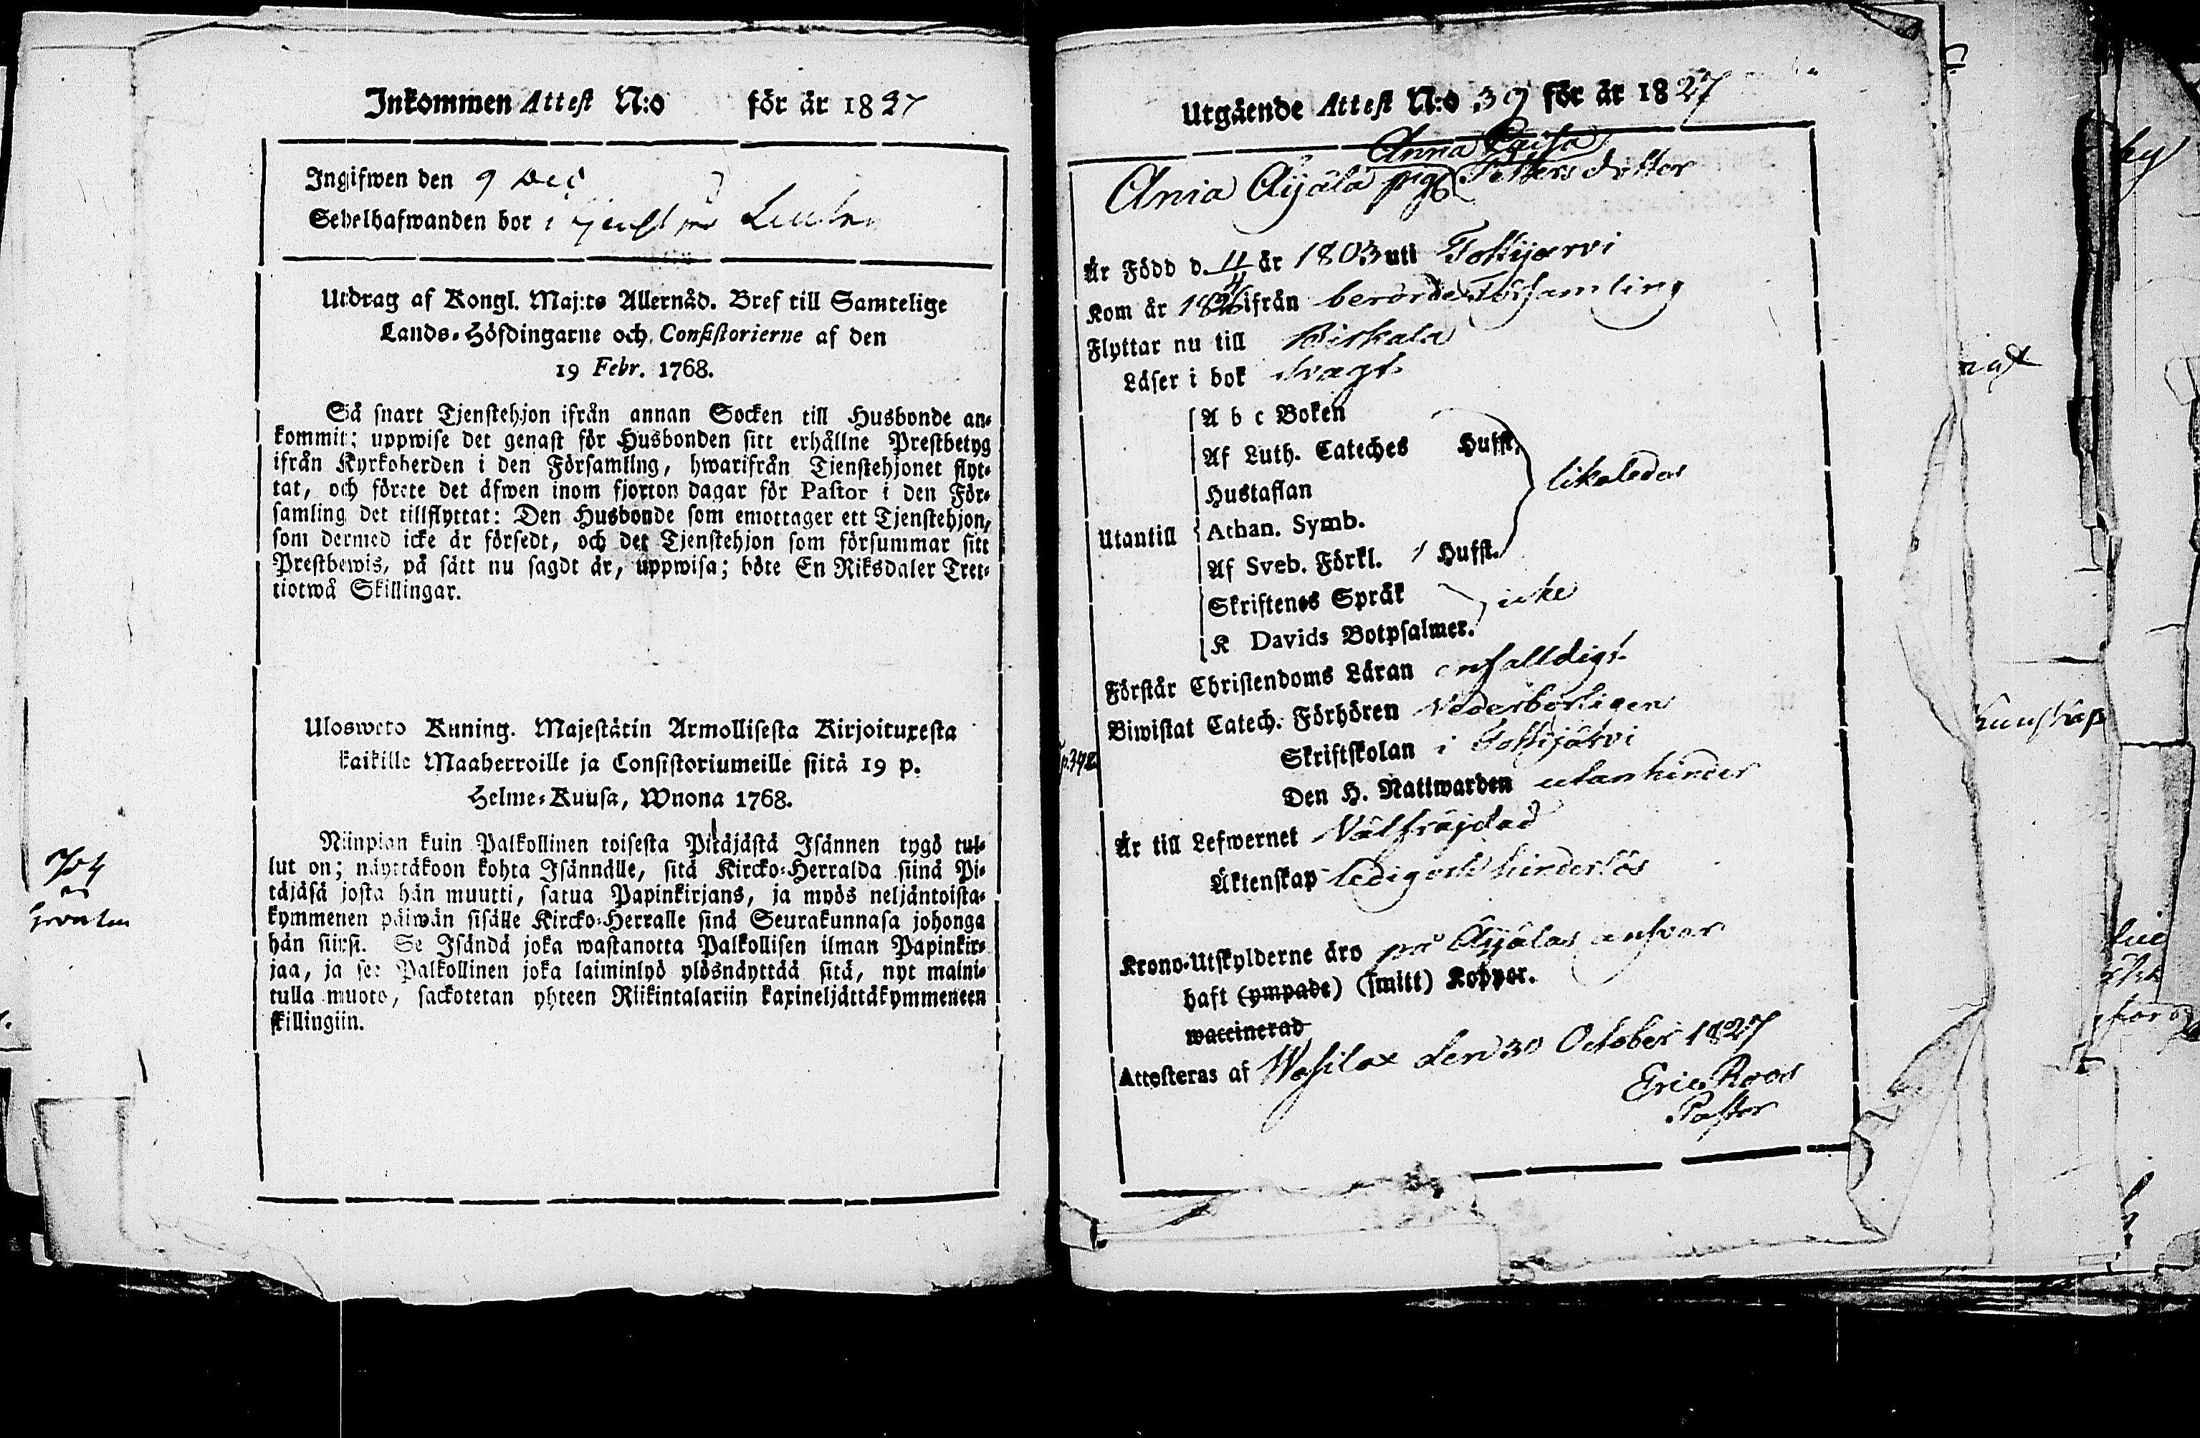 Inkommen Attest N:o för år 1827
Ingifwen den 9 Dec
Sedelhafwanden bor i
Utdrag af Kongl. Maj:ts Allernåd. Bref till Samtelige
Lands-Höfdingarne och Consistorierne af den
19 Febr. 1768.
Så snart Tjenstehjon ifrån annan Socken till Husbonde an-
kommit; uppwise det genast för Husbonden sitt erhållne Prestbetyg
ifrån Kyrkoherden i den Församling, hwarifrån Tjenstehjonet flyt-
tat, och förete det äfwen inom fjorton dagar för Pastor i den För-
samling det tillflyttat: Den Husbonde som emottager ett Tjenstehjon,
som dermed icke är försedt, och det Tjenstehjon som försummar sitt
Prestbewis, på sätt nu sagdt är, uppwisa; böte En Riksdaler Tret-
tiotwå Skillingar.
Ulosweto Kuning. Majestätin Armollisesta Kirjoituxesta
kaikille Maaherroille ja Consistoriumeille siitä 19 p.
Helme-Kuusa, Wuona 1768.
Niinpian kuin Palkollinen toisesta Pitäjästä Isännen tygö tul-
lut on; näyttäkoon kohta Isännälle, sitä Kircko-Herralda siinä Pi-
täjäsä josta hän muutti, satua Papinkirjans, ja myös neljäntoista-
kymmenen päiwän sisälle Kircko-Herralle sinä Seurakunnasa johonga
hän siirsi. Se Isändä joka wastanotta Palkollisen ilman Papinkir-
jaa, ja see Palkollinen joka laiminlyö ylösnäyttää sitä, nyt maini-
tulla muoto, sackotetan yhteen Riikintalariin kaxineljättäkymmeneen
skillingiin.
Utgående Attest N:o 39 för år 1827
Anna Caisa
Ania Äijälä pig. Petters dotter
Är Född d. 11/4 år 1803 uti Tottijärvi
Kom år 1826 ifrån berörde Församling
Flyttar nu till Birkala
Läser i bok svagt
A b c Boken
Af Luth. Cateches Hufst.
Hustaflan
likaledes
Utantill Athan. Symb.
Af Sveb. Förkl. 1 Hufst.
Skriftenes Språk
icke
K Davids Botpsalmer.
Förstår Christendoms Läran enfalldigt
Biwistat Catech. Förhören Vederbörligen
Skriftskolan i Tottijärvi
p. 342
Den H. Nattwarden utan hinder
Är till Lefwernet Välfräjdad
Äktenskap ledig och hinderlös
Krono-Utskylderne äro på Äijälas ansvar
haft (ympade) (smitt) Koppor.
waccinerad
Attesteras af Wesilax den 30 October 1827
Eric Roos
Pastor
kunskap